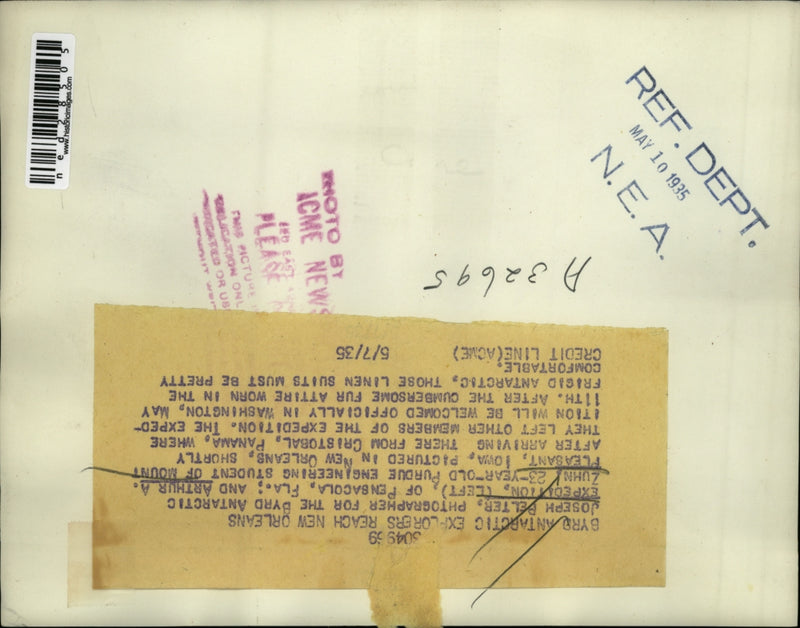 ned28505
www.historicimages.com
REF. DEPT.
MAY 10 1935
N. E. A.
PHOTO BY
ACME NEWS
PLEASE
THIS PICTURE
PUBLICATION ONL
OR US
A 32695
304969
BYRD ANTARCTIC EXPLORERS REACH NEW ORLEANS
JOSEPH PELTER, PHTOGRAPHER FOR THE BYRD ANTARCTIC
EXPEDITION, (LEFT), OF PENSACOLA, FLA.; AND ARTHUR A.
ZUHN, 23-YEAR-OLD PURDUE ENGINEERING STUDENT OF MOUNT
PLEASANT, IOWA, PICTURED IN NEW ORLEANS, SHORTLY
AFTER ARRIVING THERE FROM CRISTOBAL, PANAMA, WHERE
THEY LEFT OTHER MEMBERS OF THE EXPEDITION. THE EXPED-
ITION WILL BE WELCOMED OFFICIALLY IN WASHINGTON, MAY
11TH. AFTER THE CUMBERSOME FUR ATTIRE WORN IN THE
FRIGID ANTARCTIC, THOSE LINEN SUITS MUST BE PRETTY
COMFORTABLE.
CREDIT LINE(ACME) 5/7/35